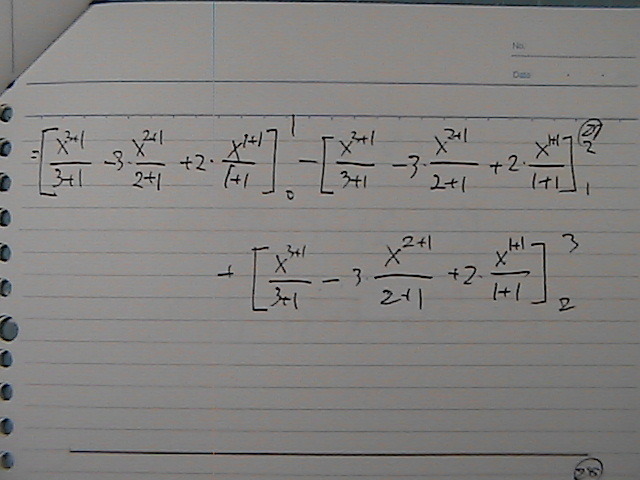 No.
Date . .
= [x^{3+1}/3+1 - 3·x^{2+1}/2+1 + 2·x^{1+1}/1+1]_0^1 - [x^{3+1}/3+1 - 3·x^{2+1}/2+1 + 2·x^{1+1}/1+1]_1^2
+ [x^{3+1}/3+1 - 3·x^{2+1}/2+1 + 2·x^{1+1}/1+1]_2^3